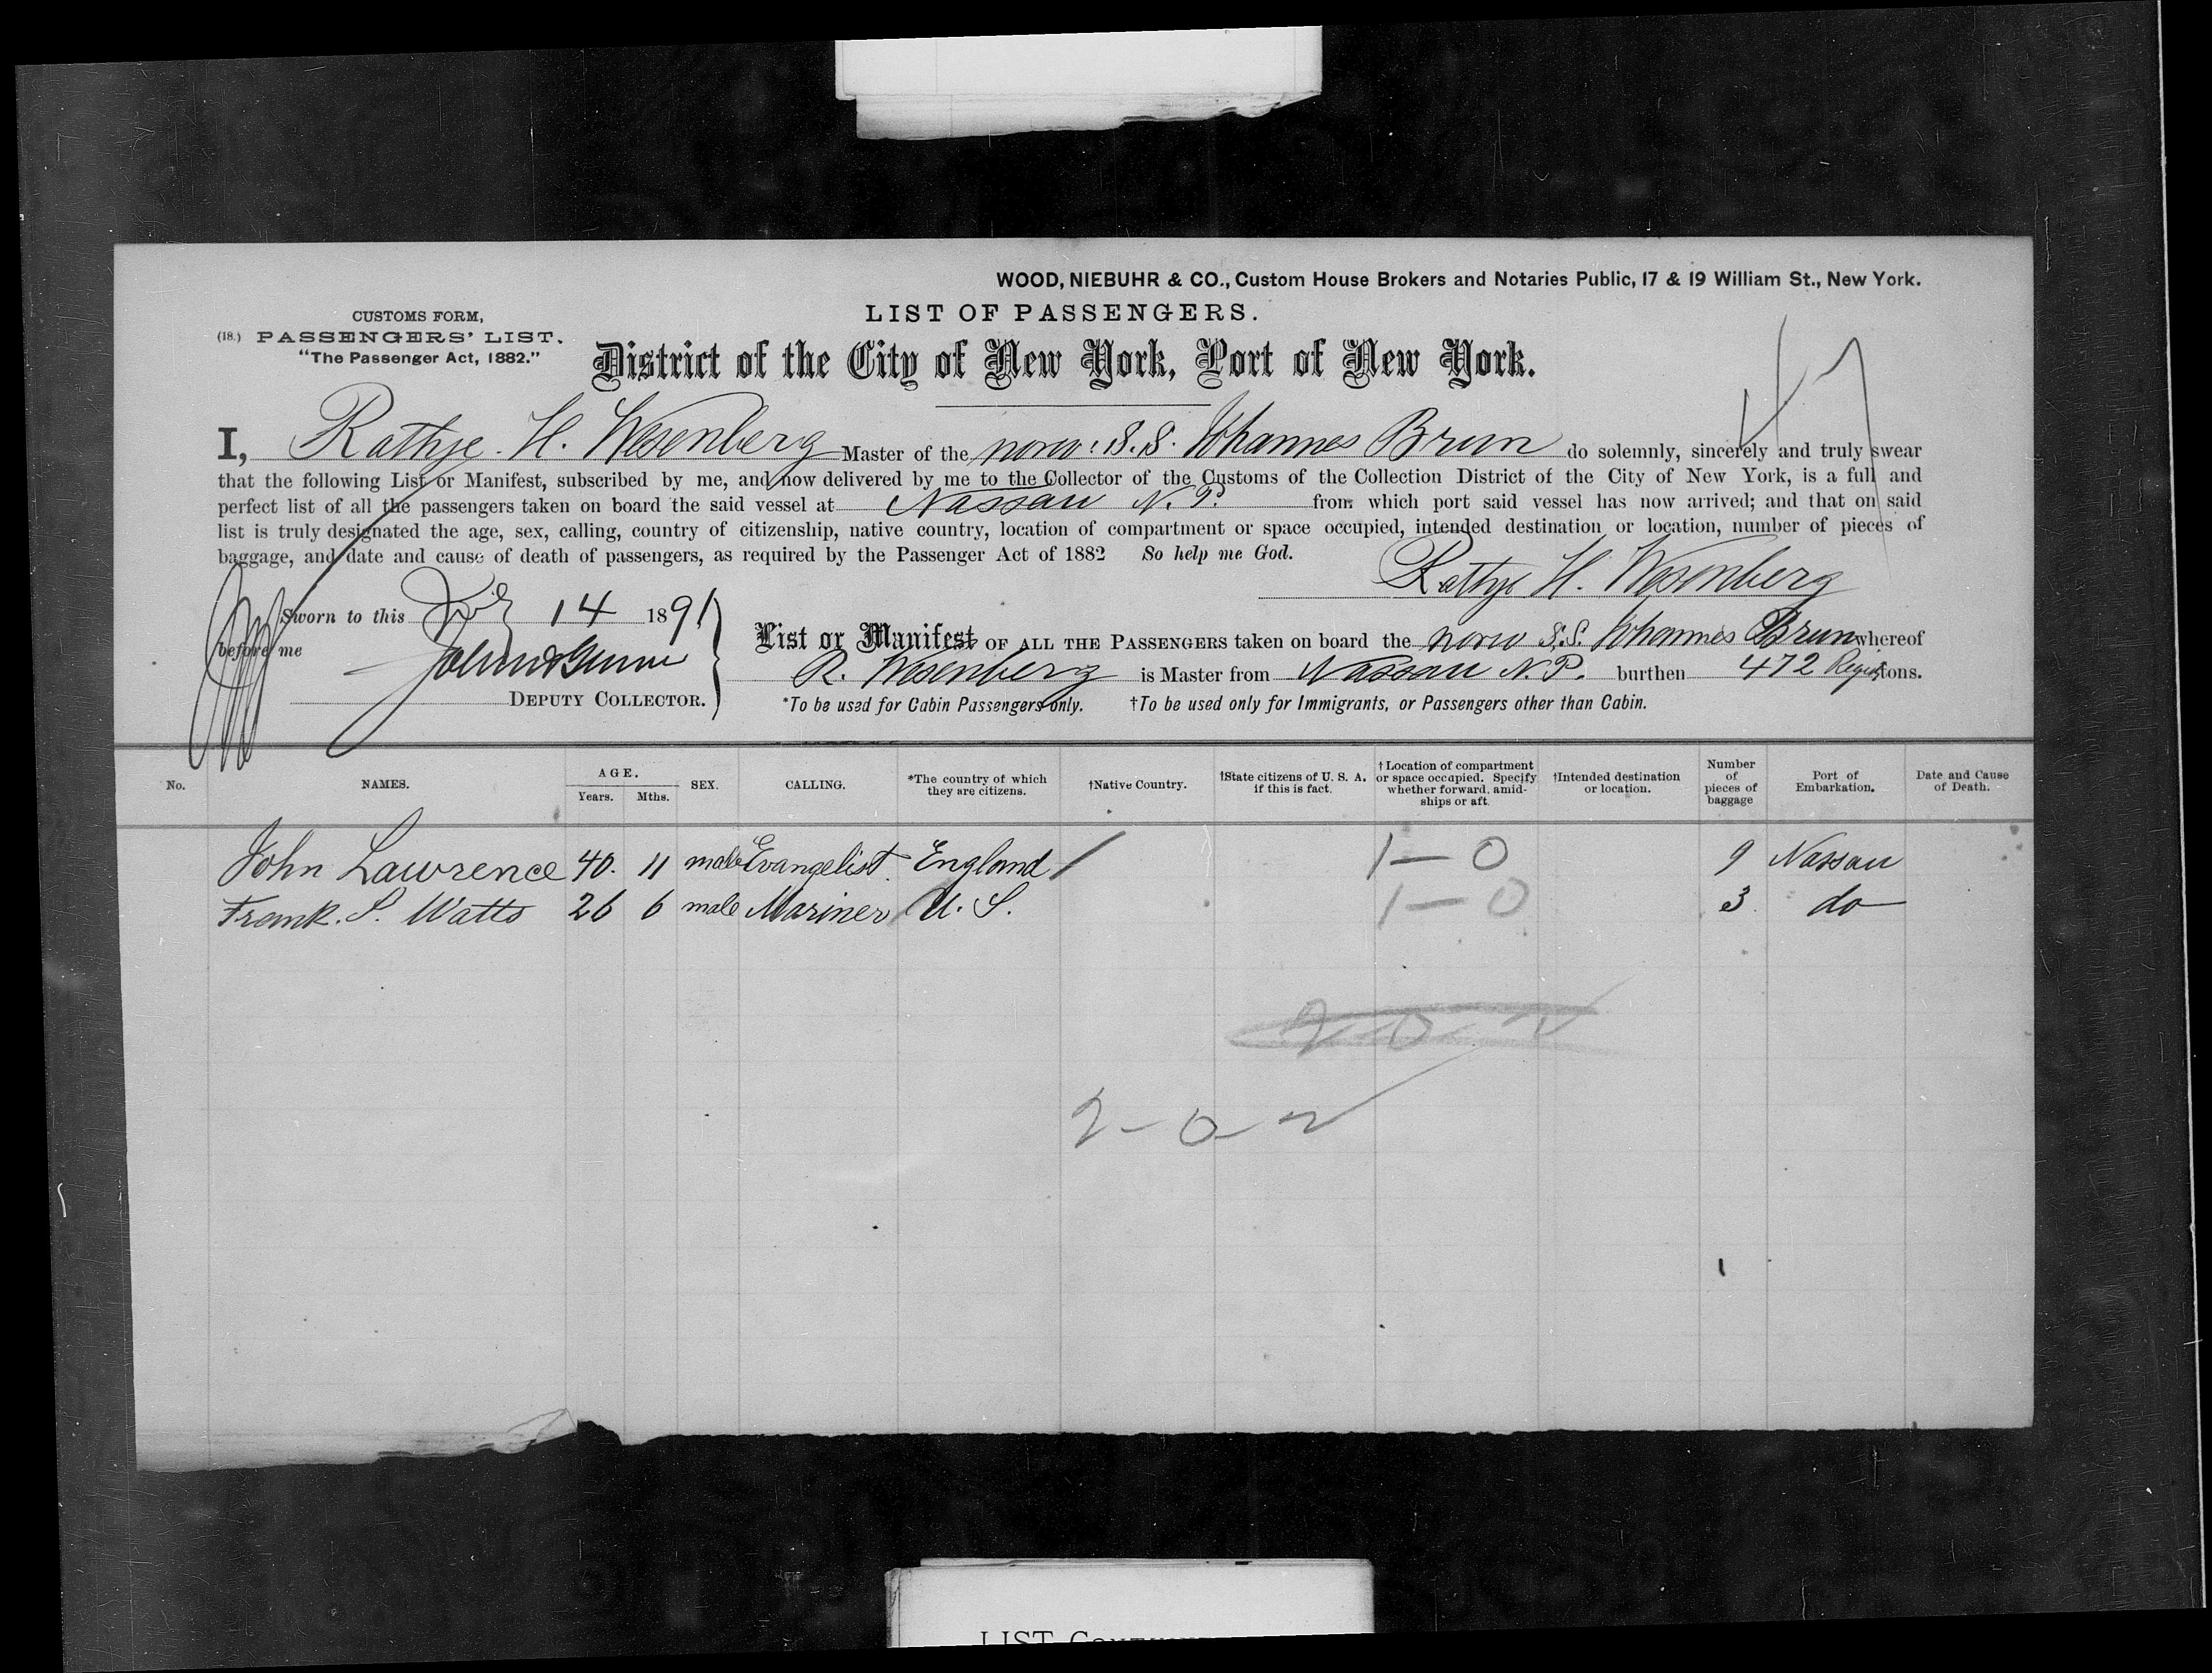 WOOD, NIEBUHR & CO., Custom House Brokers and Notaries Public, 17 & 19 William St., New York.
CUSTOMS FORM,
(18.) PASSENGERS' LIST.
"The Passenger Act, 1882."
LIST OF PASSENGERS.
District of the City of New York, Port of New York.
I, Rathje H. Wesenberg Master of the norw. S.S. Johannes Brun do solemnly, sincerely and truly swear
that the following List or Manifest, subscribed by me, and now delivered by me to the Collector of the Customs of the Collection District of the City of New York, is a full and
perfect list of all the passengers taken on board the said vessel at Nassau N. P. from which port said vessel has now arrived; and that on said
list is truly designated the age, sex, calling, country of citizenship, native country, location of compartment or space occupied, intended destination or location, number of pieces of
baggage, and date and cause of death of passengers, as required by the Passenger Act of 1882 So help me God.
Rathje H. Wesenberg
Sworn to this 14 1891
before me
DEPUTY COLLECTOR.
List or Manifest OF ALL THE PASSENGERS taken on board the norw S.S. Johannes Brun whereof
R. Wesenberg is Master from Nassau N. P. burthen 472 tons.
*To be used for Cabin Passengers only. †To be used only for Immigrants, or Passengers other than Cabin.
No. NAMES. AGE. Years. Mths. SEX. CALLING. *The country of which they are citizens. †Native Country. †State citizens of U. S. A. if this is fact. †Location of compartment or space occupied. Specify whether forward, amidships or aft. †Intended destination or location. Number of pieces of baggage Port of Embarkation. Date and Cause of Death.
John Lawrence 40. 11 male Evangelist England / 1 — 0 9 Nassau
Frank. S. Watts 26 6 male Mariner U. S. 1 — 0 3 do
2 - 0 - 2
LIST